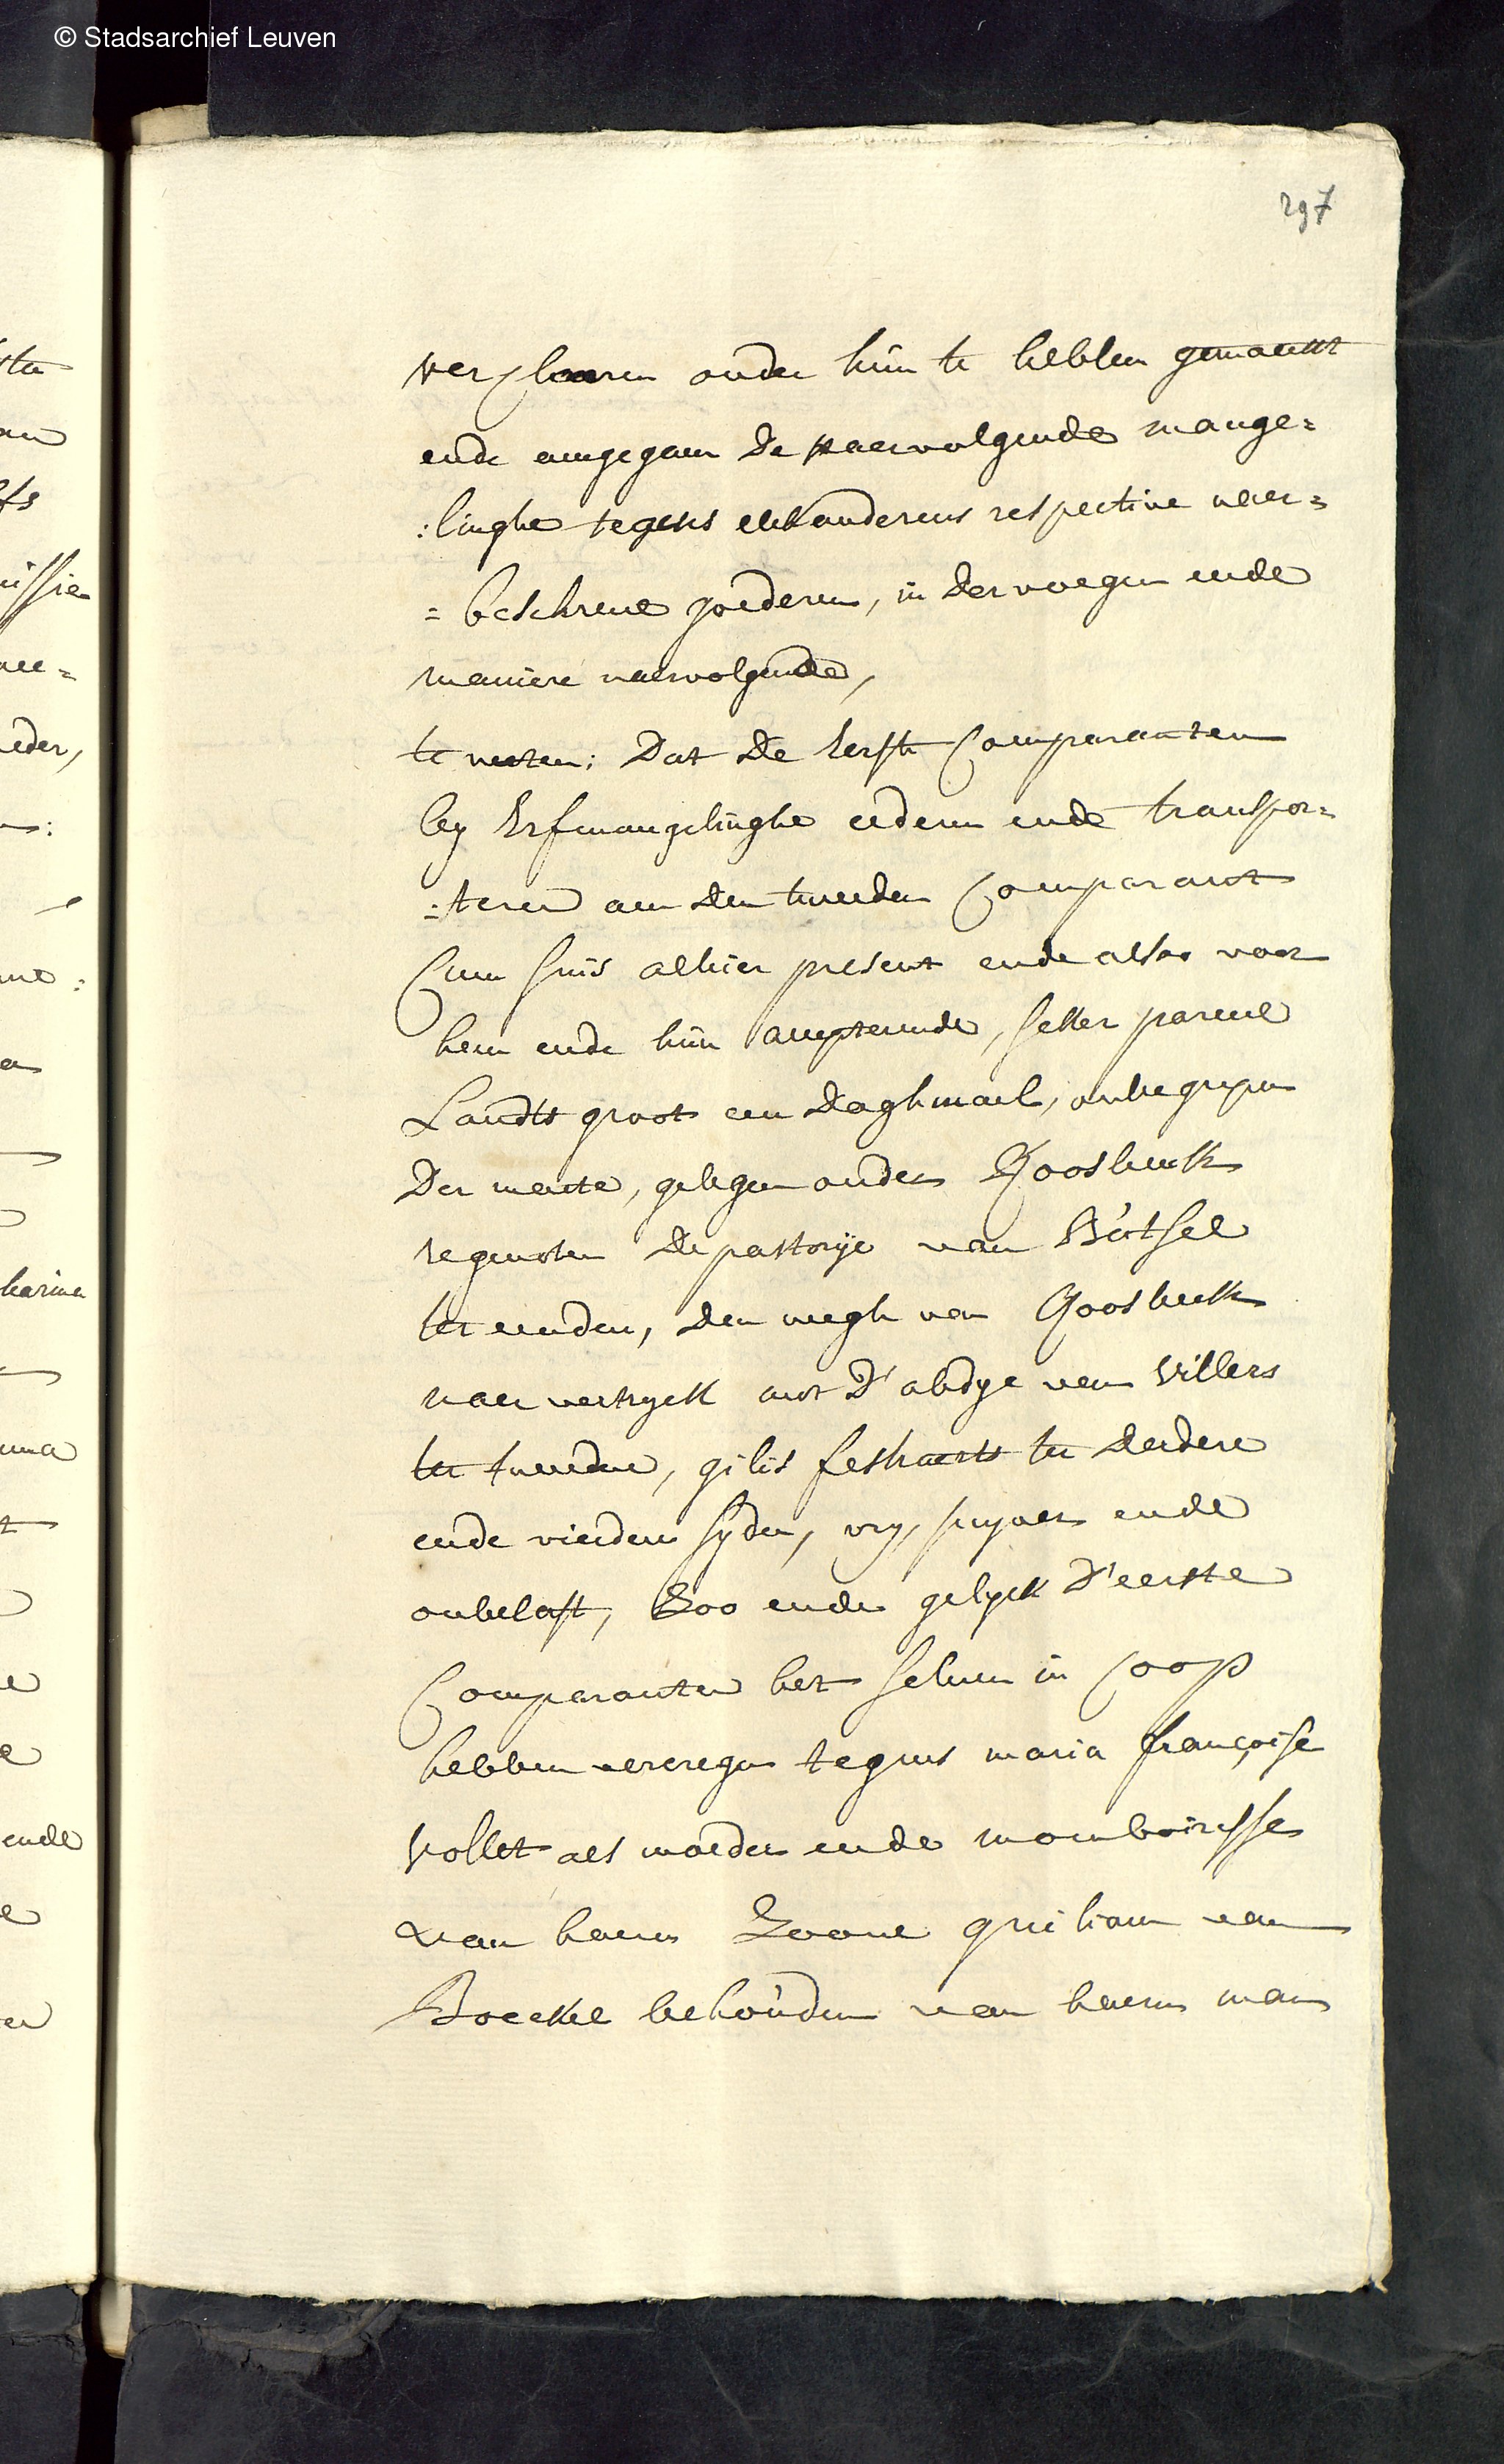 © Stadsarchief Leuven
297
verclaeren onder hun te hebben gemaeckt
ende aengegaen de naervolgende mange=
:linghe tegens elckanderens respective naer=
=beschreve goederen, in der voegen ende
maniere naervolgende,
te weten: Dat de Eerste Comparanten
by Erfmangelinghe cederen ende transpor=
:teren aen den tweeden Comparant
Cum suis alhier present ende alsoo voor
hem ende hun accepterende, seker parceel
Landts groot een daghmael, onbegrepen
Der maete, gelegen onder Roosbeeck
regenoten de pastorije van Butsel
ter eender, den wegh van Roosbeeck
naer vertryck met D'abdye van Villers
ter tweedere, gilis festraerts ter derdere
ende vierder syden, vry, suyver ende
onbelast, Zoo ende gelyck D'eerste
Comparanten het selven in Coop
hebben vercregen tegens maria françoise
Vollet als moeder ende momboiresse
van haeren Zoone guiliam van
Boeckel behouden van haeren man